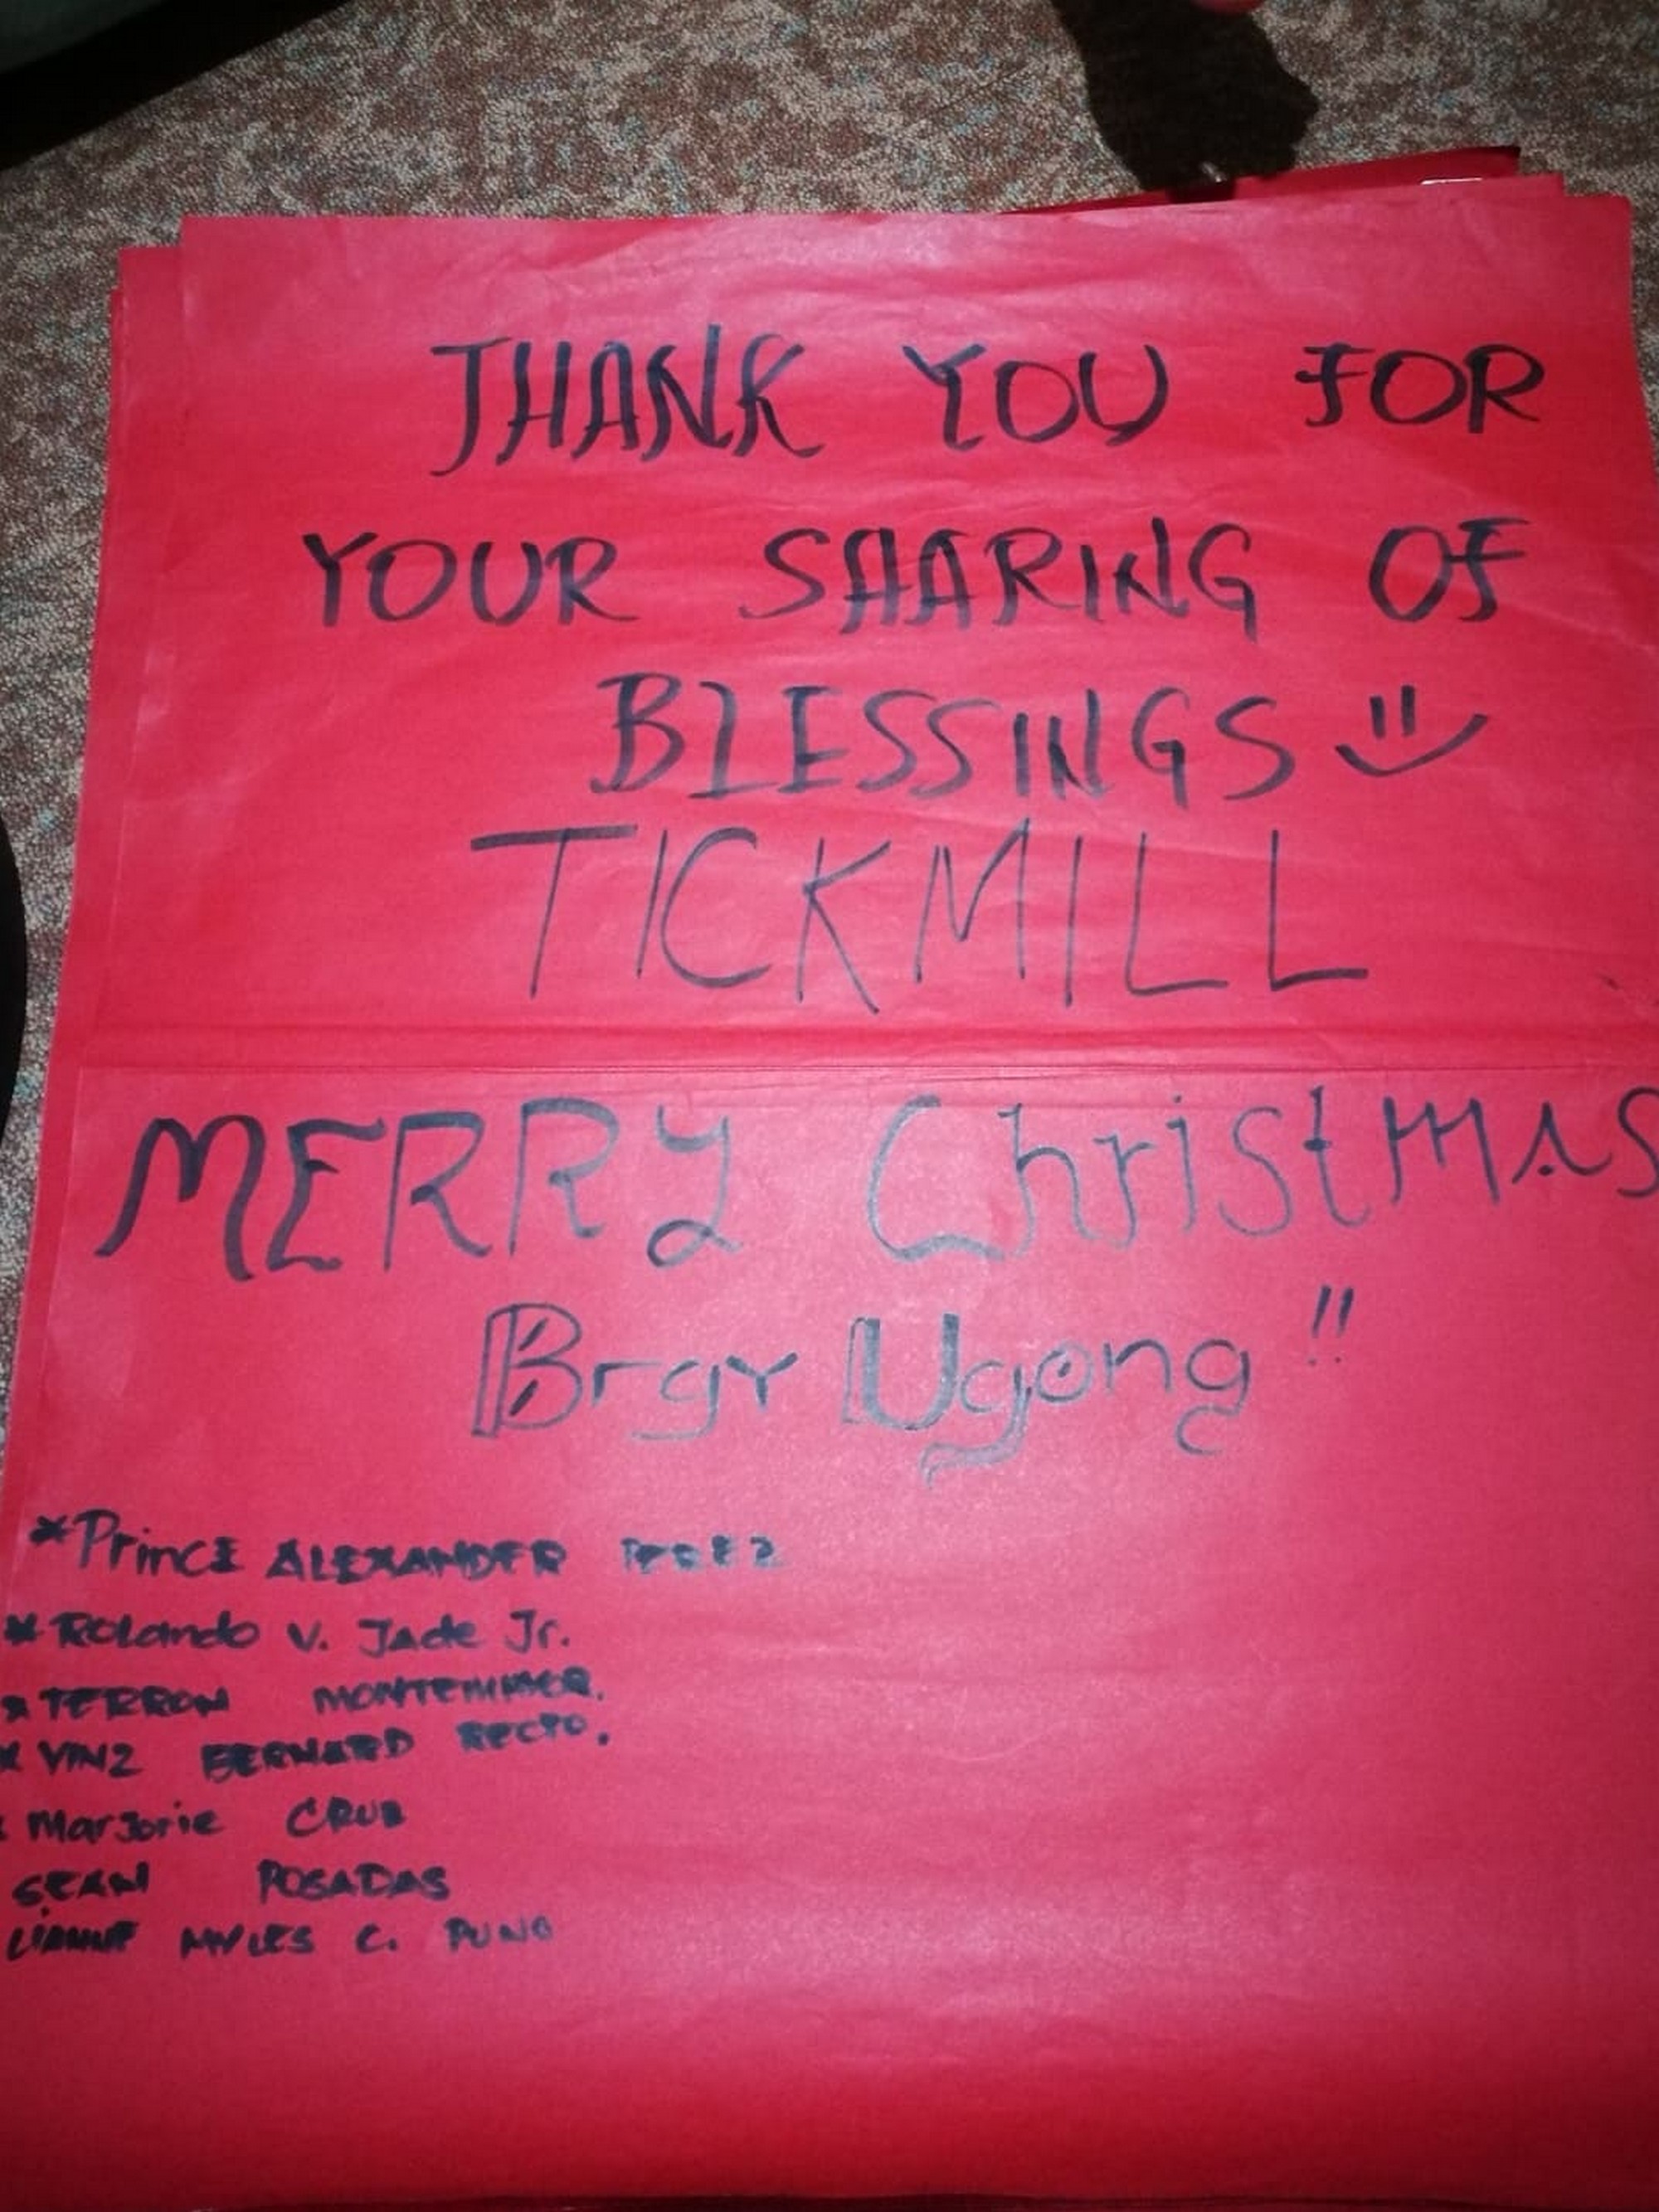 THANK YOU FOR
YOUR SHARING OF
BLESSINGS
TICKMILL
MERRY ChristMAS
Brgy Ugong !!
*PrincE ALEXANDER PEREZ
*Rolando V. Jade Jr.
*TERRON
*VINZ BERNARD RECTO.
Marjorie CRUZ
SEAN POSADAS
LIANNE MYLES C. PUNO